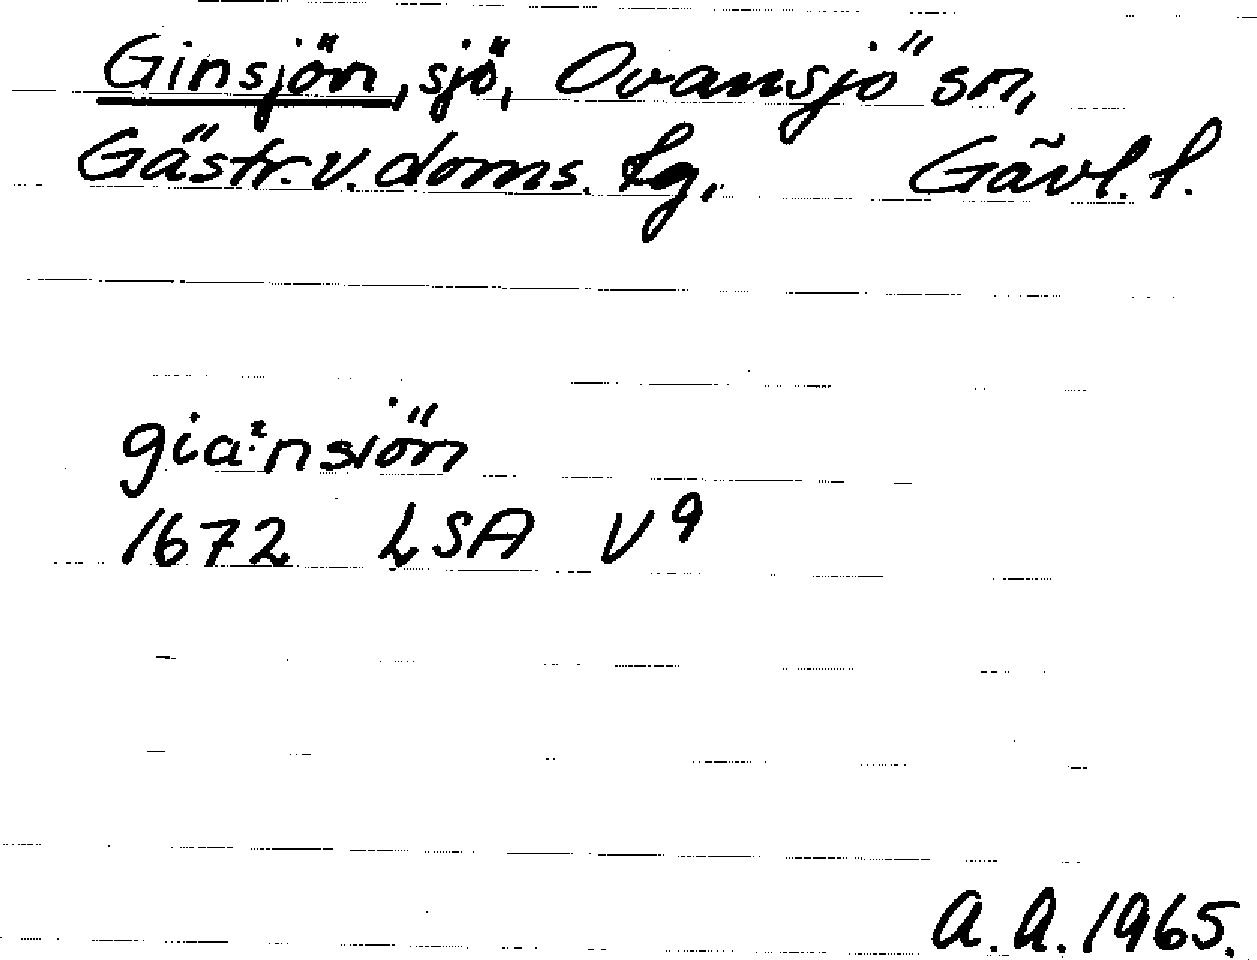 Ginsjön, sjö, Ovansjö sn,
Gästr. v. doms. tg, Gävl. l.
gia:nsiön
1672 LSA V 9
A. A. 1965.